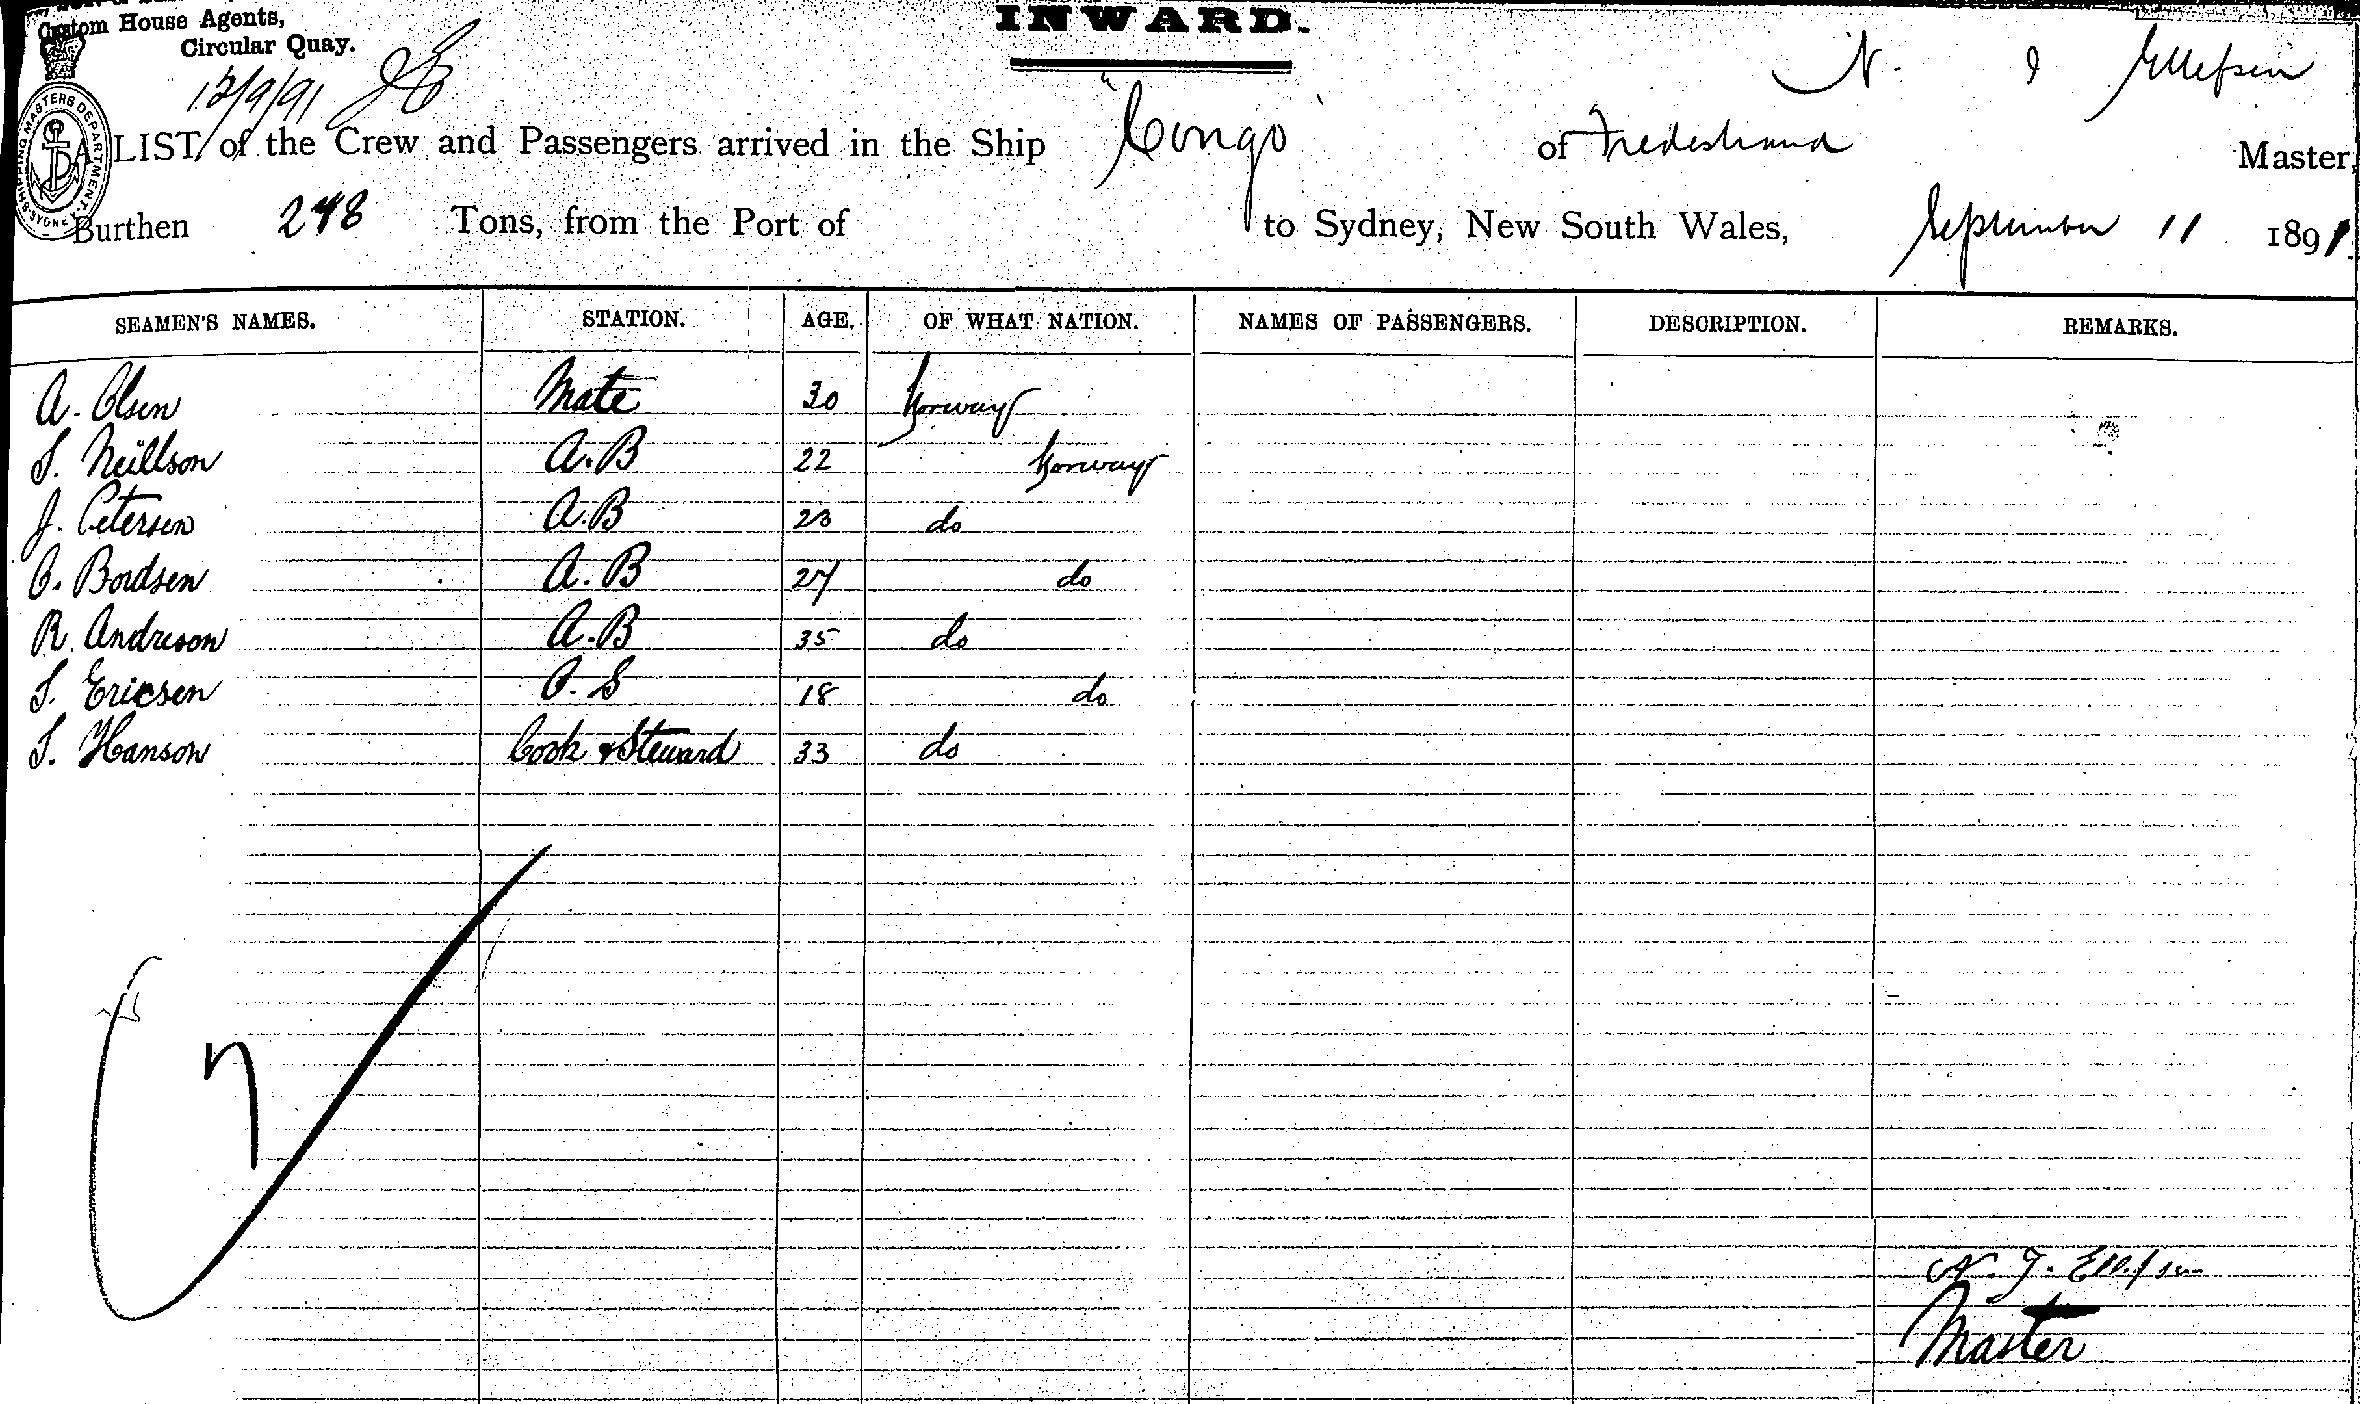 Custom House Agents,
Circular Quay.
INWARD.
12/9/91
N. J Ellefsen
SHIPPING MASTERS DEPARTMENT. SYDNEY
A LIST of the Crew and Passengers arrived in the Ship "Congo" of Fredestrand Master,
Burthen 248 Tons, from the Port of to Sydney, New South Wales, September 11 1891.
SEAMEN'S NAMES. STATION. AGE. OF WHAT NATION. NAMES OF PASSENGERS. DESCRIPTION. REMARKS.
A. Olsen Mate 30 Norway
S. Neillson A.B 22 Norway
J. Petersen A.B 23 do
O. Bordsen A.B 27 do
R. Andreson A.B 35 do
S. Ericsen O.S 18 do
S. Hanson Cook & Steward 33 do
7
N. J. Ellefsen
Master